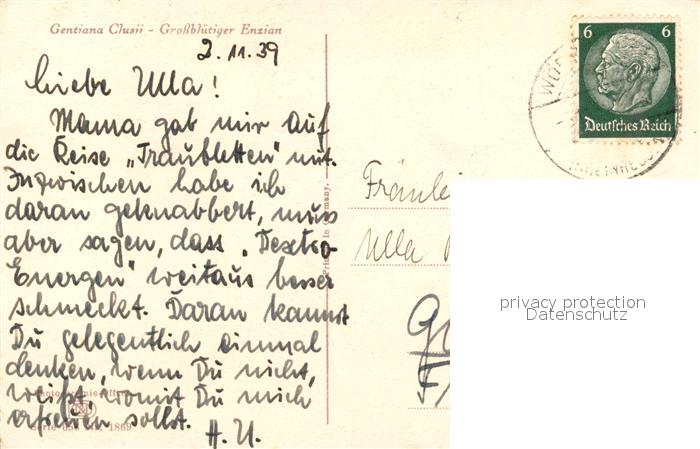 Gentiana Clusii - Großblütiger Enzian
2.11.39
Liebe Ulla!
Mama gab mir auf
die Reise „Traubletten" mit.
Inzwischen habe ich
daran geknabbert, muss
aber sagen, dass „Dextro-
Energen" weitaus besser
schmeckt. Daran kannst
Du gelegentlich einmal
denken, wenn Du nicht,
weißt, womit Du mich
erfreuen sollst.
H. U.
Serie 1869
Printed in Germany.
6 6
Deutsches Reich
Fräulei
Ulla
privacy protection
Datenschutz